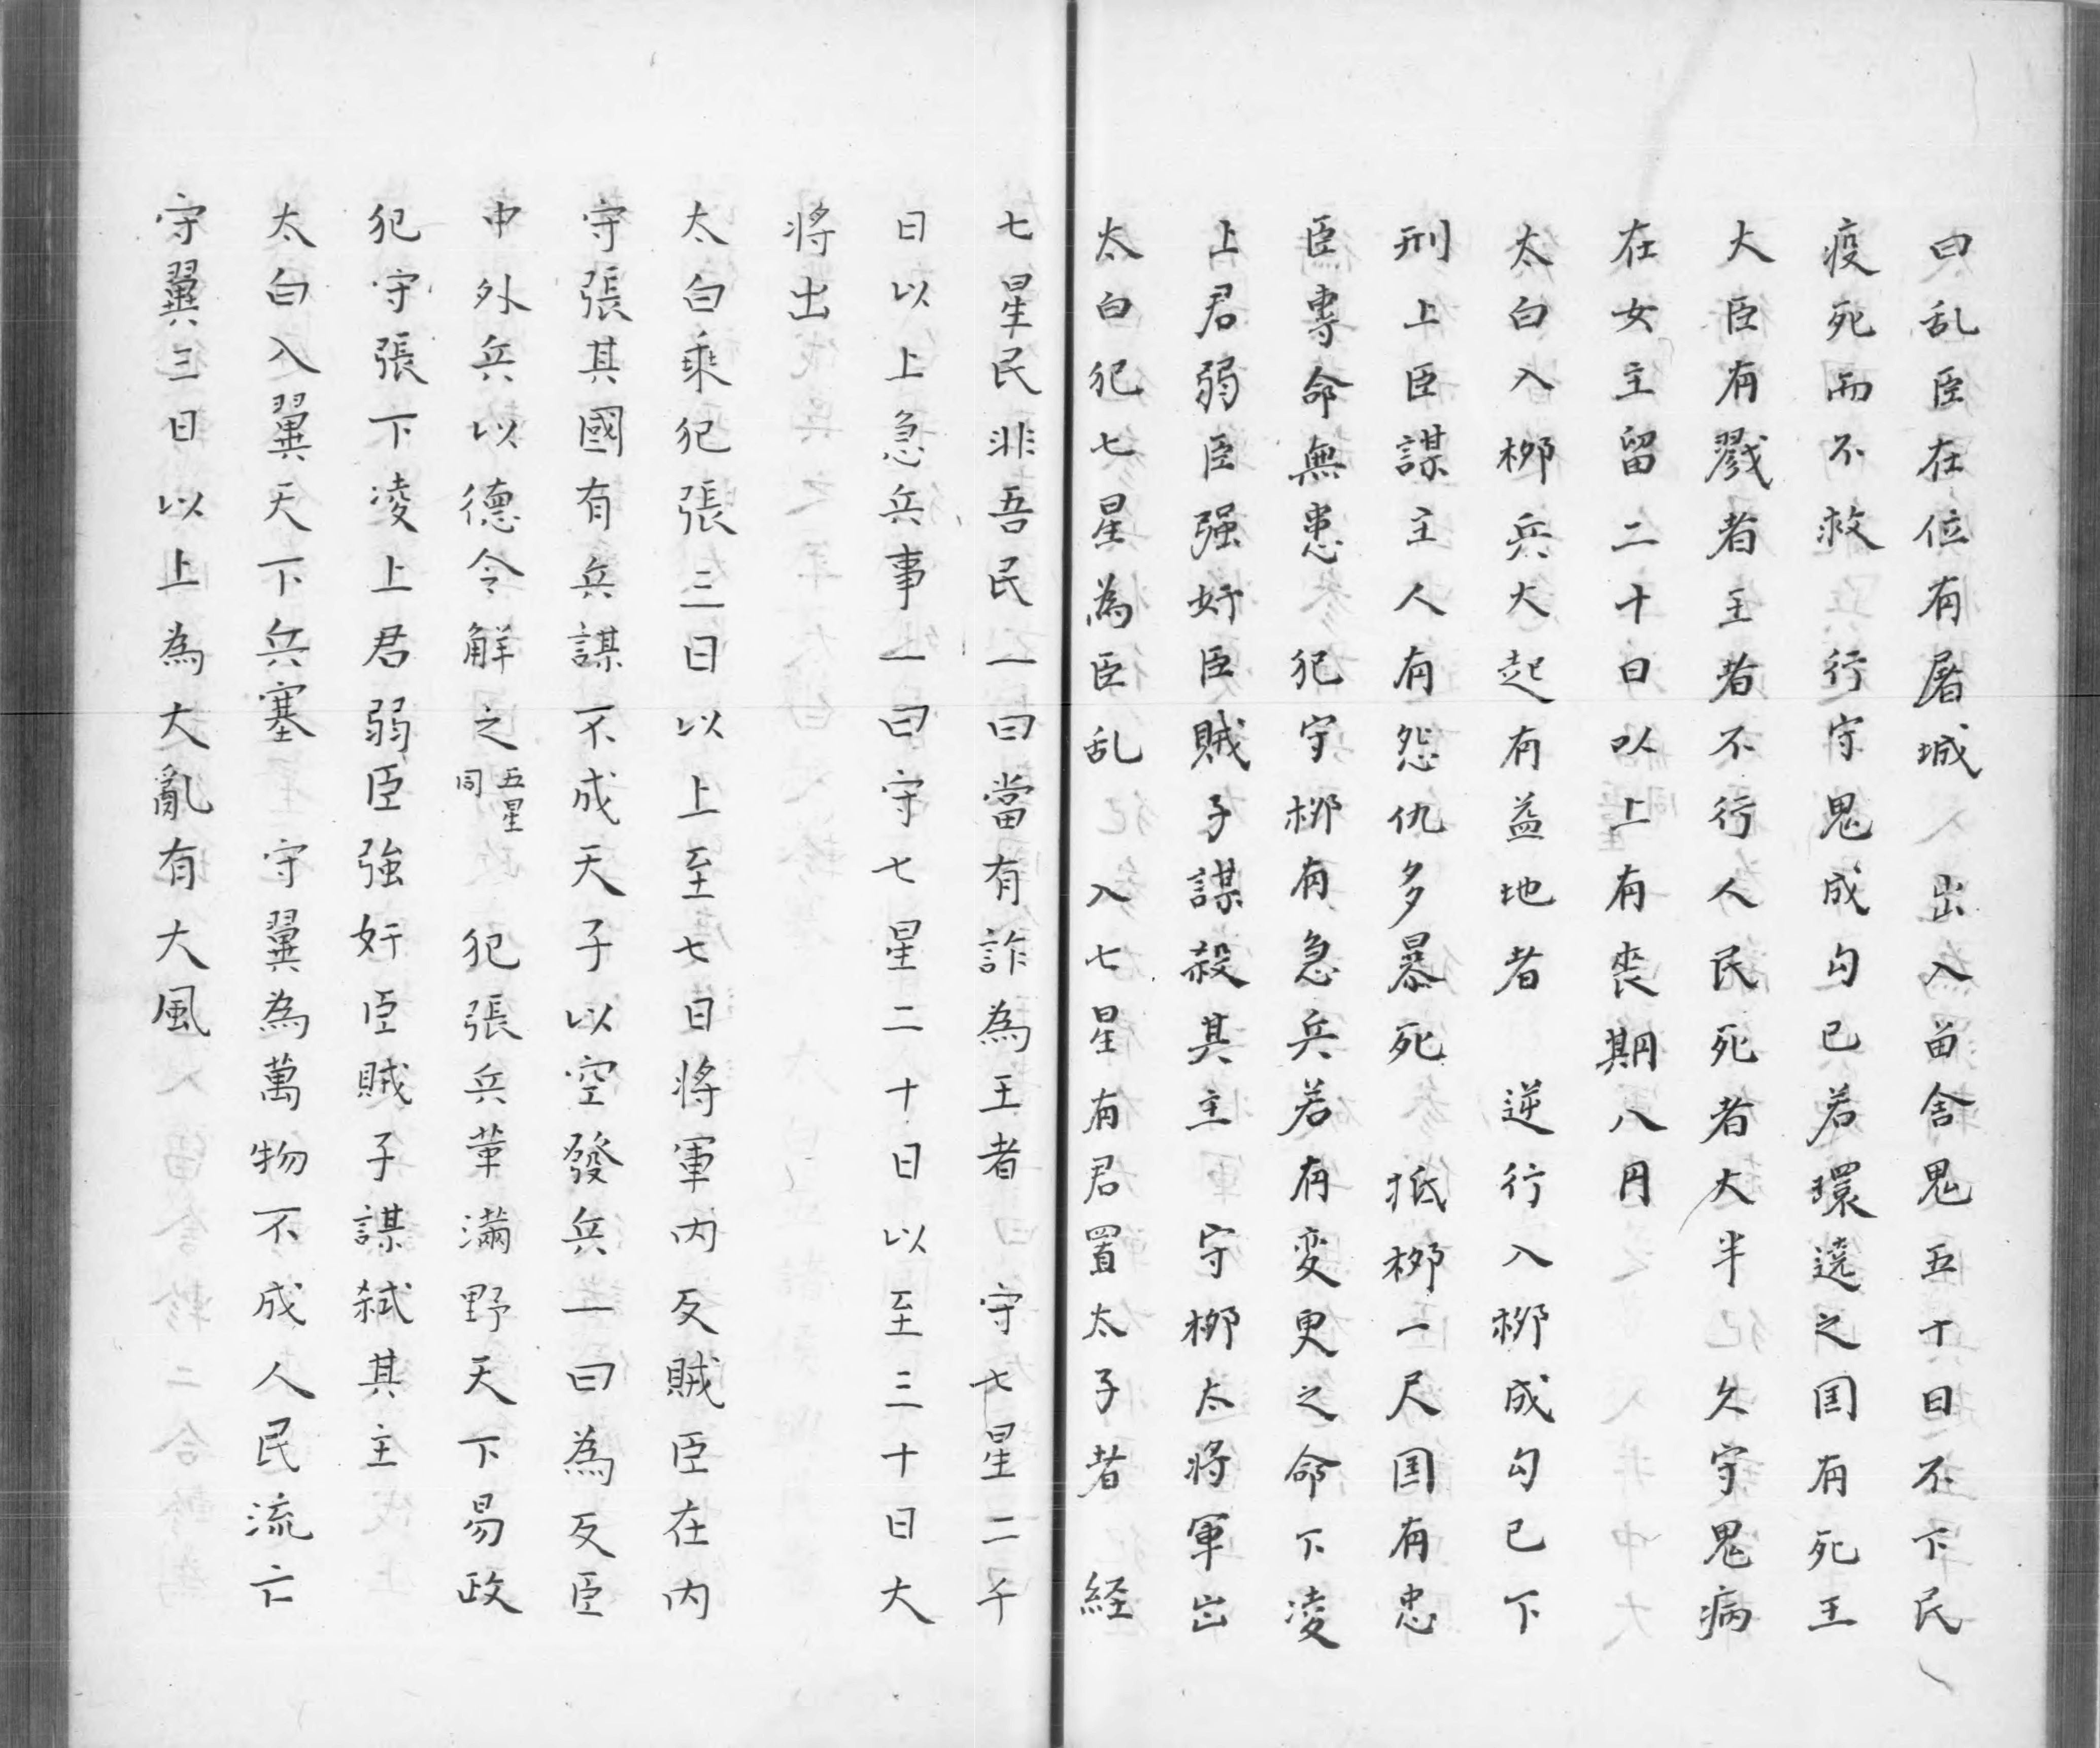 曰乱臣在位有屠城　出入留舍鬼五十日不下民
疫死而不救　行守鬼成勾已若環遶之国有死王
大臣有戮者王者不行人民死者大半　久守鬼病
在女主留二十日以上有喪期八月
太白入柳兵大起有益地者　逆行入柳成勾已下
刑上臣謀主人有怨仇多暴死　抵柳一尺国有忠
臣専命無患　犯守柳有急兵若有変更之命下凌
上君弱臣强奸臣賊子謀殺其主　守柳太将軍出
太白犯七星為臣乱　入七星有君置太子者　経
七星民非吾民一曰當有詐為王者　守七星二千
日以上急兵事一曰守七星二十日以至三十日大
将出
太白乘犯張三日以上至七日将軍内反賊臣在内
守張其國有兵謀不成天子以空發兵一曰為反臣
中外兵以德令解之五星同　犯張兵革滿野天下易政
犯守張下凌上君弱臣強奸臣賊子謀弑其主
太白入翼天下兵塞　守翼為萬物不成人民流亡
守翼三日以上為大亂有大風